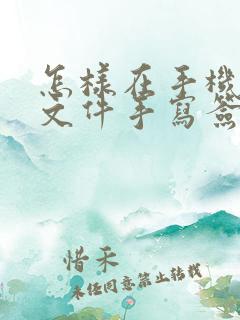 怎樣在手機
文件手寫簽
惜禾
未经同意禁止转载